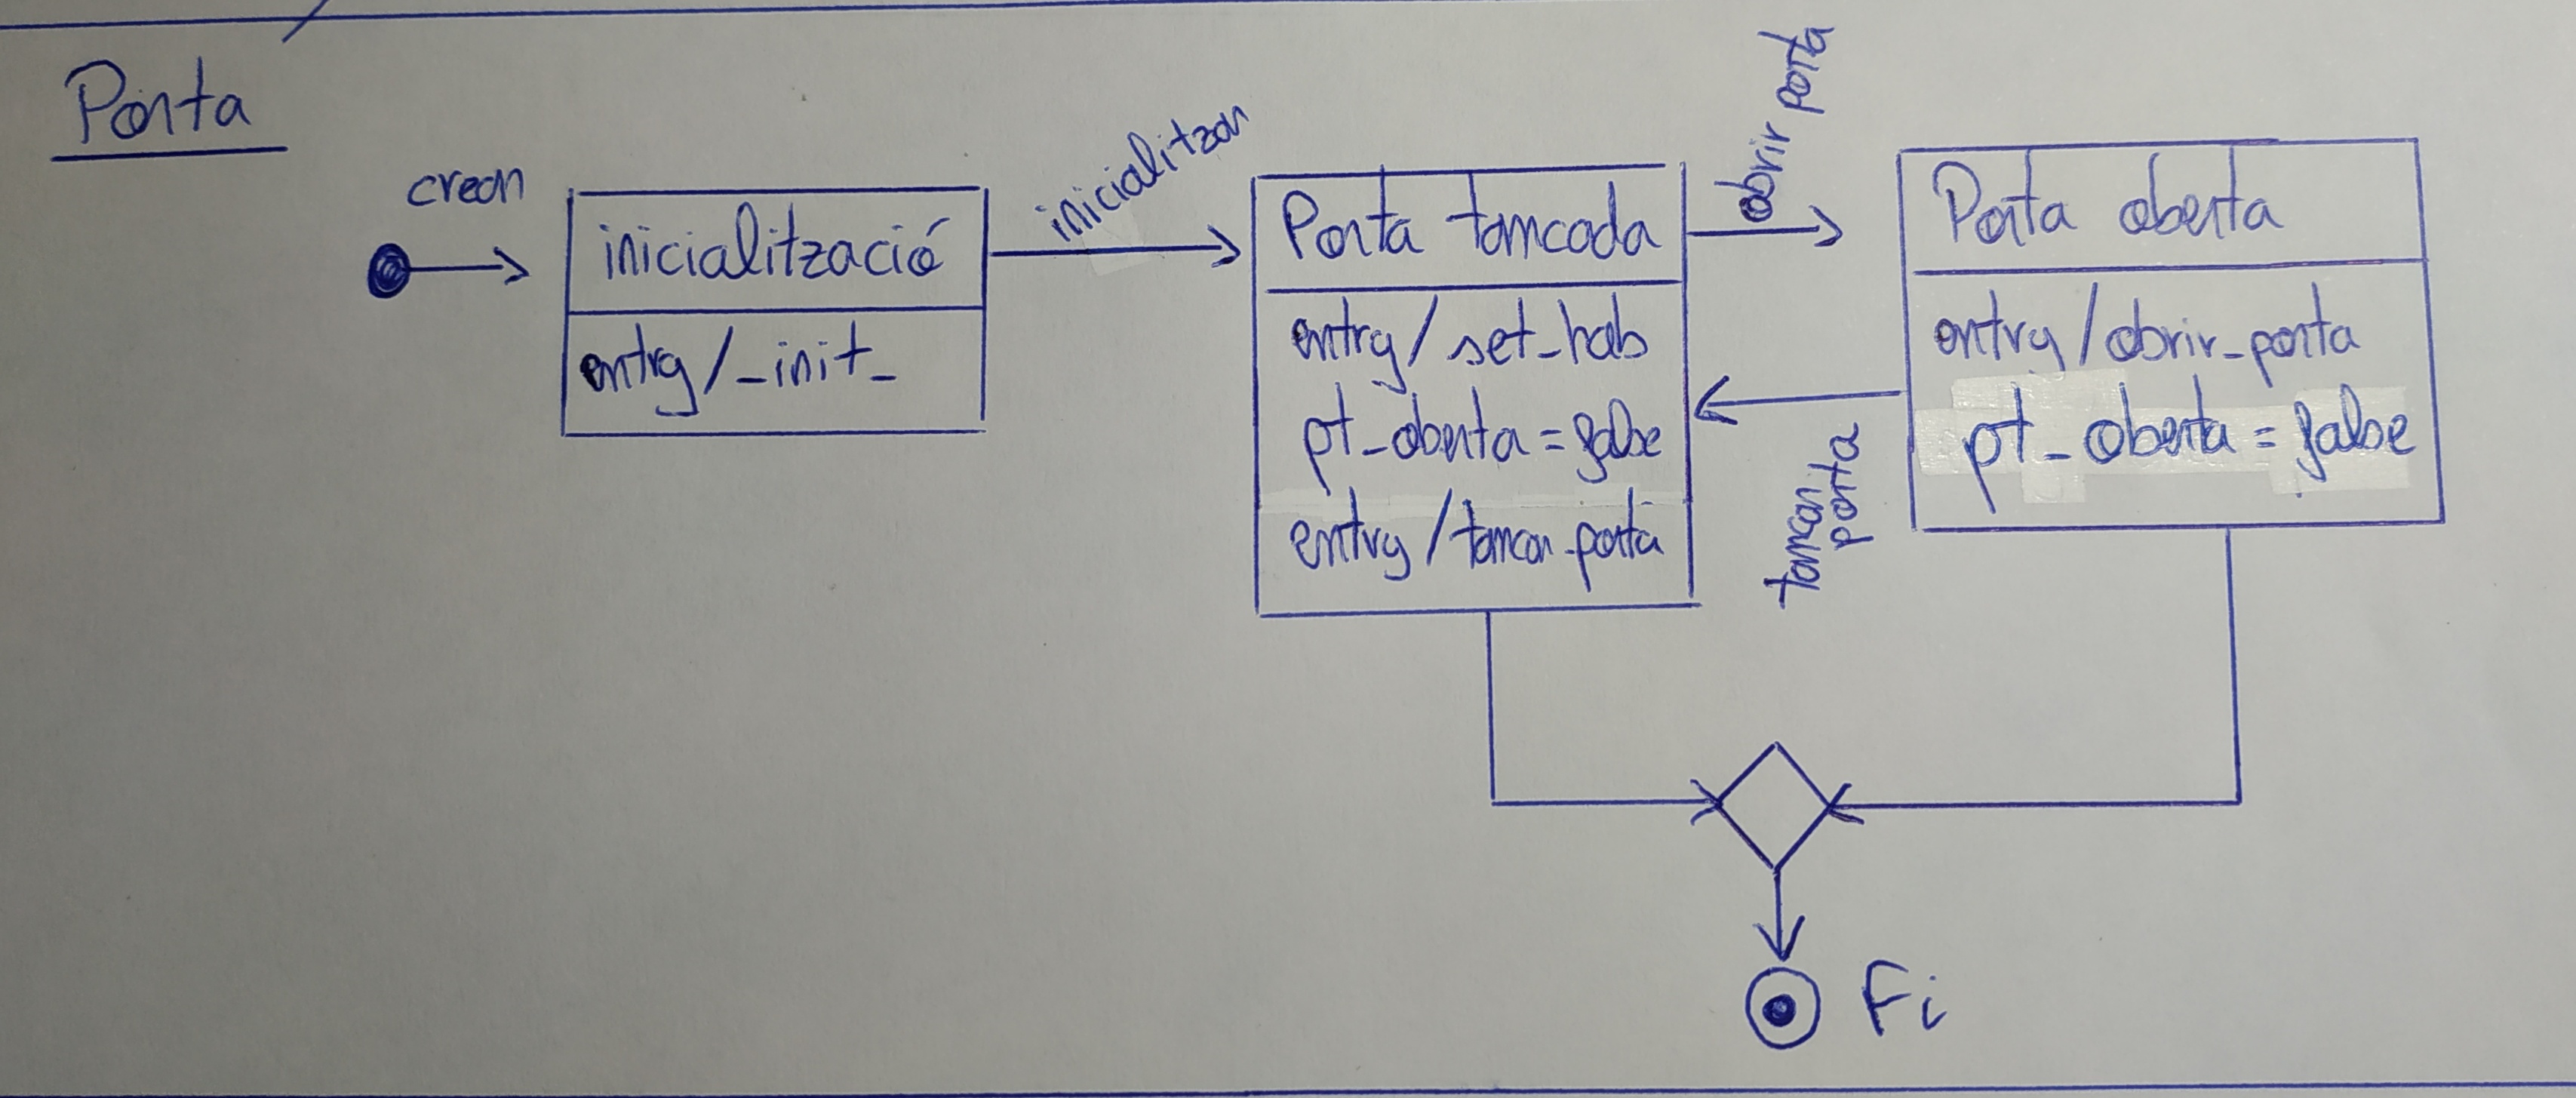 Porta
crear
inicialització
entry/_init_
inicialitzar
Porta tancada
entry/ set_hab
pt_oberta = false
entry/tancar_porta
obrir porta
tancar
porta
Porta oberta
entry/obrir_porta
pt_oberta = false
Fi